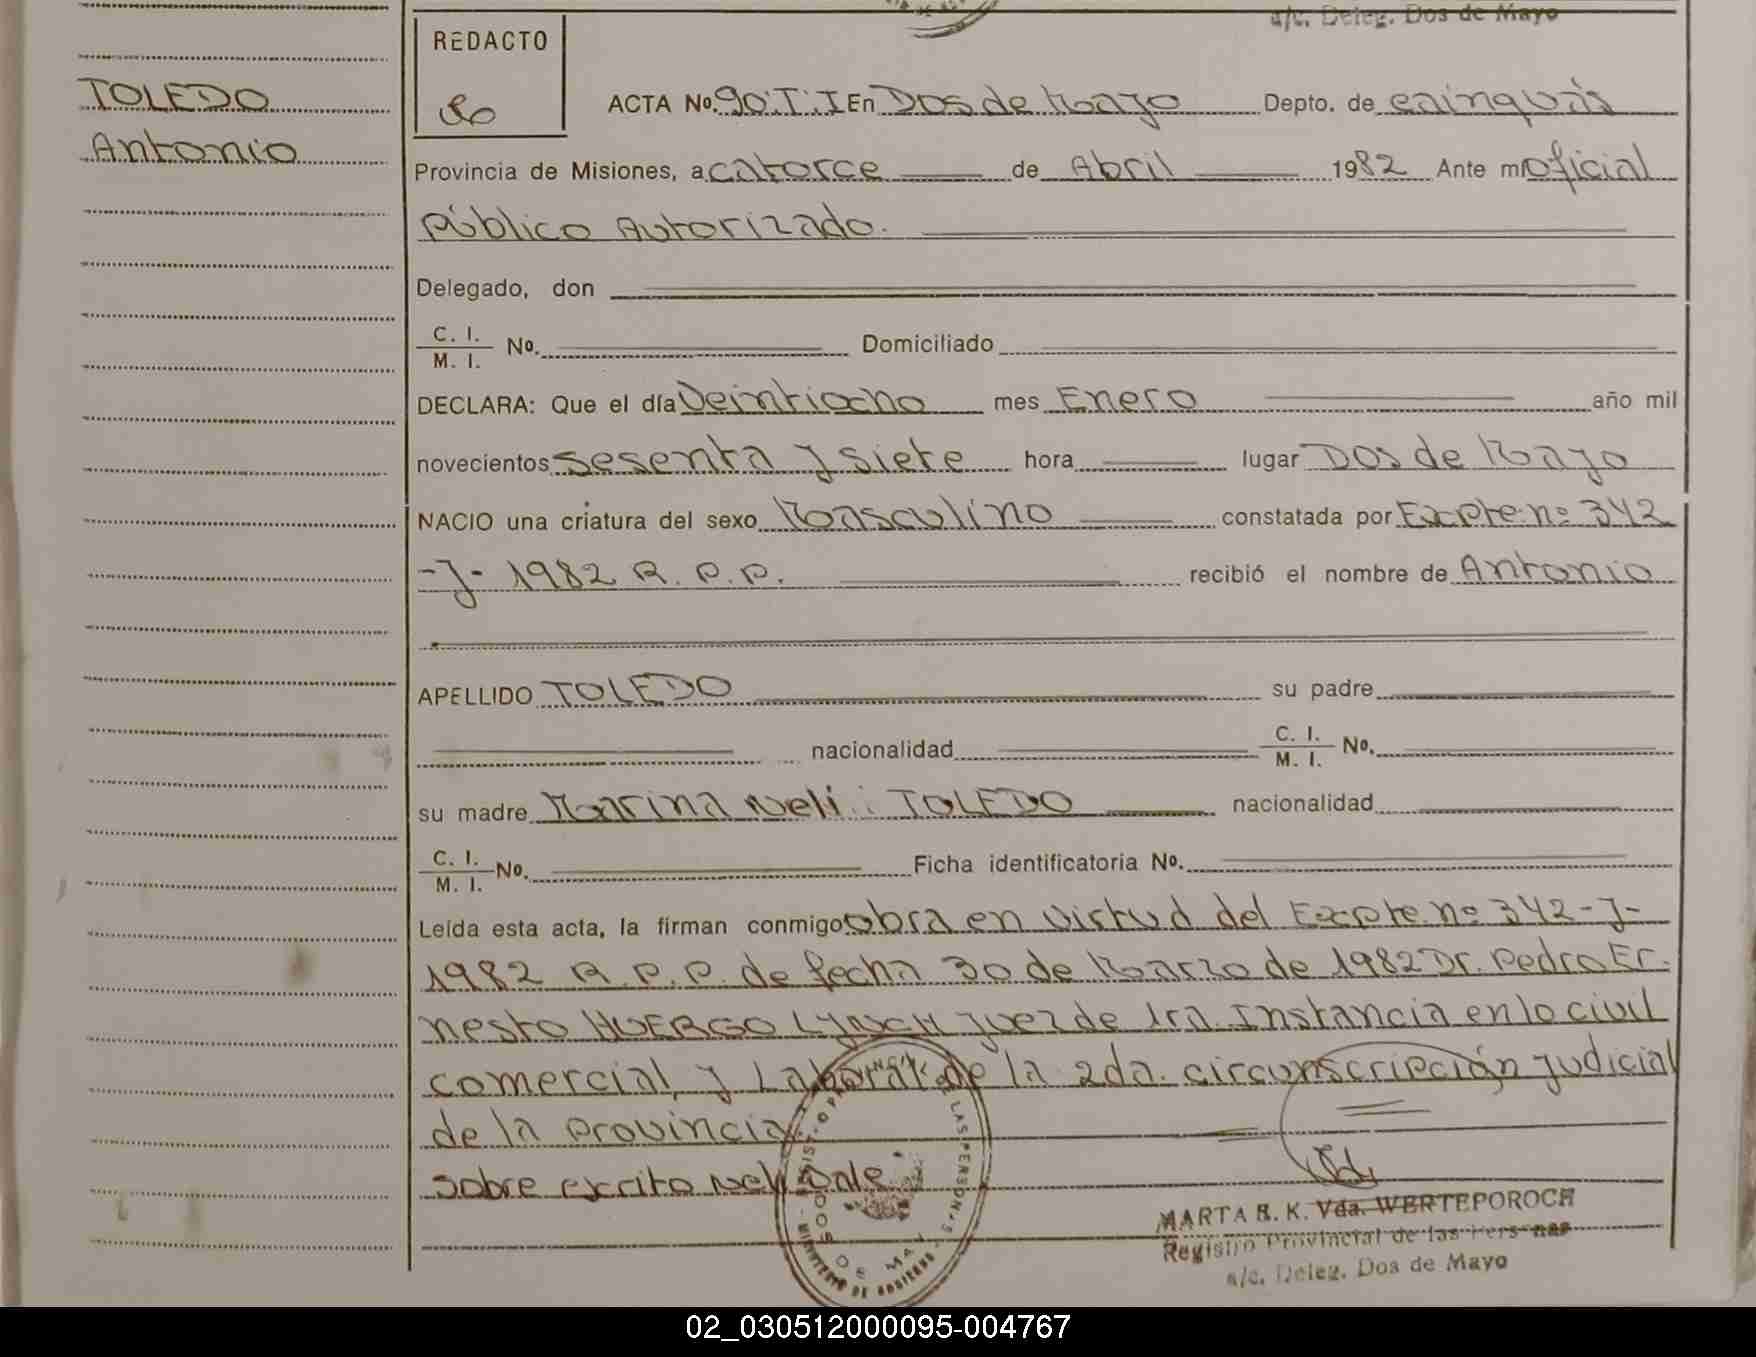 a/c. Deleg. Dos de Mayo
REDACTO
TOLEDO
Antonio
ACTA No. 90.T.I En Dos de Mayo Depto. de Cainguás
Provincia de Misiones, a catorce de Abril 1982 Ante mí oficial
Público Autorizado.
Delegado, don
C. I.
M. I. No. Domiciliado
DECLARA: Que el día Veintiocho mes Enero año mil
novecientos sesenta y siete hora lugar Dos de Mayo
NACIO una criatura del sexo Masculino constatada por Expte. nº 342
-J- 1982 R. P. P. recibió el nombre de Antonio
APELLIDO TOLEDO su padre
nacionalidad C. I.
M. I. No.
su madre Marina Neli TOLEDO nacionalidad
C. I.
M. I. No. Ficha identificatoria No.
Leída esta acta, la firman conmigo obra en virtud del Expte. nº 342-J-
1982 R. P. P. de fecha 30 de Marzo de 1982 Dr. Pedro Er-
nesto HUERGO LYNCH Juez de 1ra. Instancia en lo civil
comercial, y Laboral de la 2da. circunscripción judicial
de la provincia
sobre escrito Neli Vale
MARTA R. K. Vda. WERTEPOROCH
Registro Provincial de las Personas
a/c. Deleg. Dos de Mayo
02_030512000095-004767